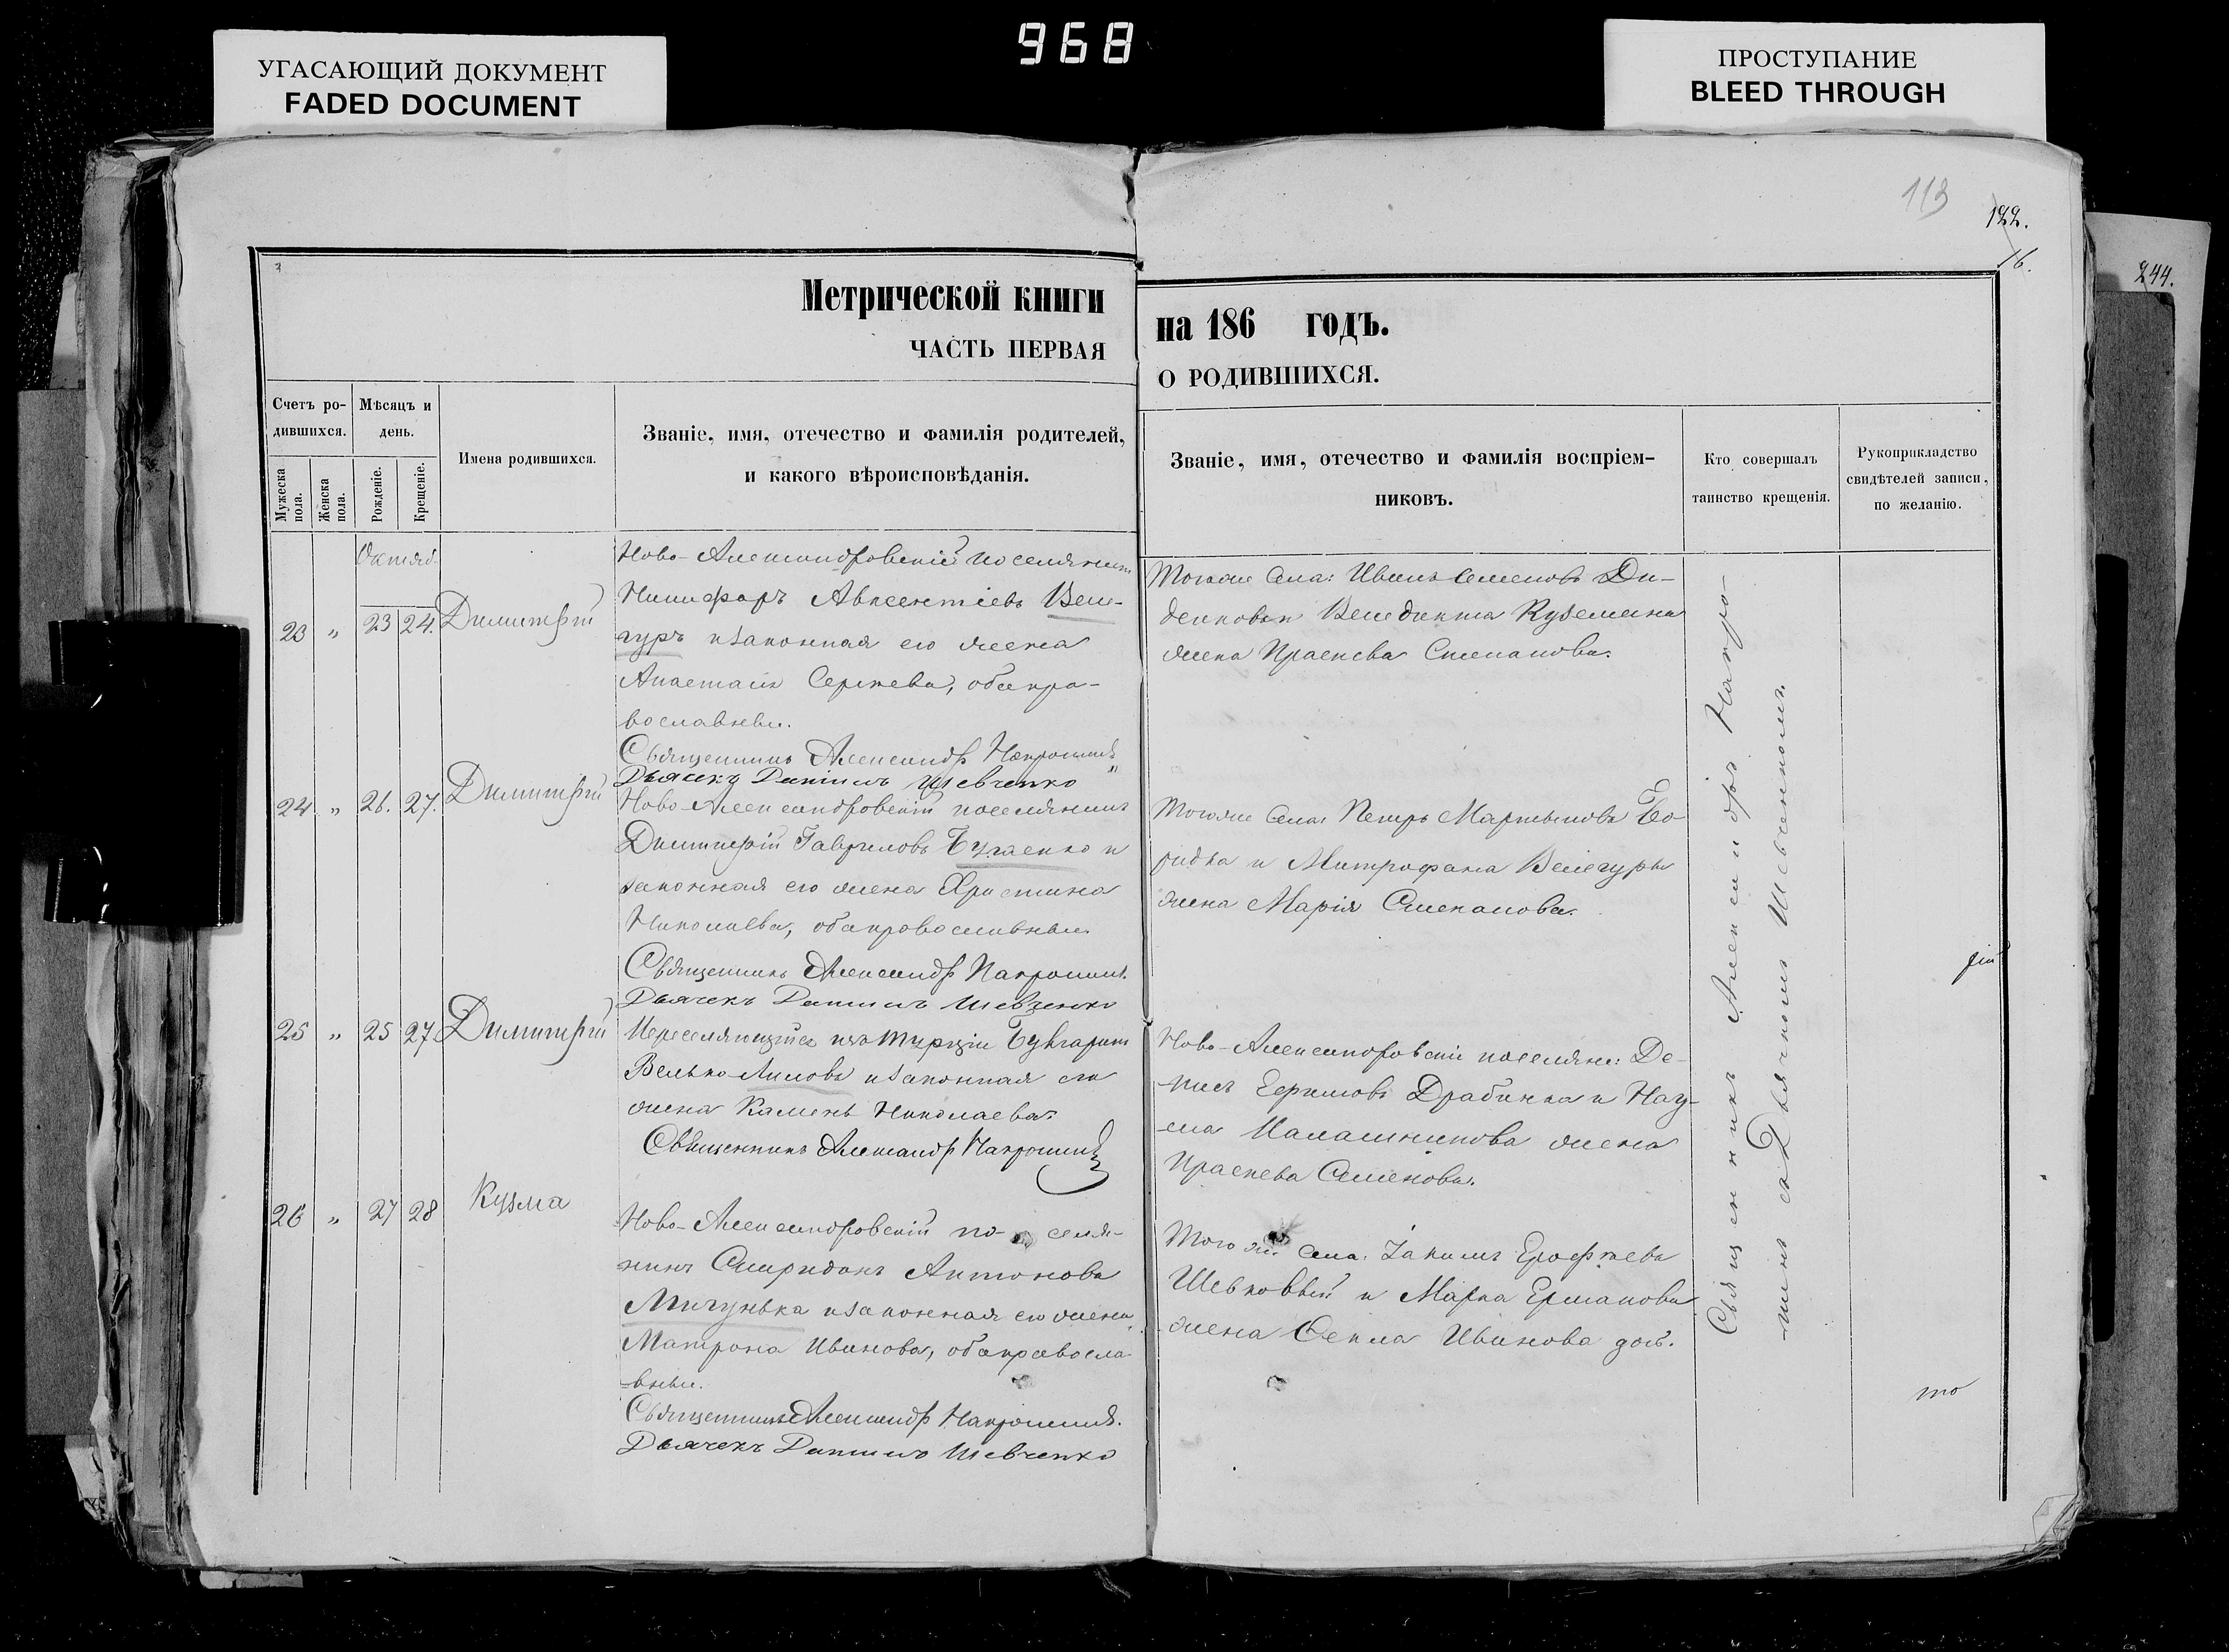 968
УГАСАЮЩИЙ ДОКУМЕНТ
FADED DOCUMENT
ПРОСТУПАНИЕ
BLEED THROUGH
113
122.
16.
244.
Метрической книги
на 186 годъ.
ЧАСТЬ ПЕРВАЯ
О РОДИВШИХСЯ.
Счетъ ро-
дившихся.
Мужеска пола.
Женска пола.
Мѣсяцъ и
день.
Рожденіе.
Крещеніе.
Имена родившихся.
Званіе, имя, отечество и фамилія родителей,
и какого вѣроисповѣданія.
Званіе, имя, отечество и фамилія воспріем-
никовъ.
Кто совершалъ
таинство крещенія.
Рукоприкладство
свидѣтелей записи,
по желанію.
Октяб.
23 " 23 24. Димитрій
Ново-Александровскій поселянинъ
Никифоръ Авксентіевъ Веле-
гуръ и законная его жена
Анастасія Сергѣева, оба пра-
вославные.
Священникъ Александръ
Дьячекъ Даніилъ Шевченко
Тогоже села: Иванъ Семеновъ Ди-
денковъ и Венедикта Куземина
жена Праскева Степанова.
24 " 26. 27. Димитрій
Ново-Александровскій поселянинъ
Димитрій Гавриловъ Бугаенко и
законная его жена Христина
Николаева, оба православные.
Священникъ Александръ
Дьячекъ Даніилъ Шевченко
Тогоже села: Петръ Мартыновъ Бо-
ридка и Митрофана Велегуры
жена Марія Степанова.
25 " 25 27 Димитрій
Переселяющійся изъ Турціи Булгаринъ
Велько и законная его
жена Камень Николаева.
Священникъ Александръ
Ново-Александровскіе поселяне: Де-
нисъ Ефимовъ Драбинка и Нау-
ма Малашникова жена
Праскева Семенова.
26 " 27 28 Кузма
Ново-Александровскій по-селя-
нинъ Спиридонъ Антоновъ
Мигунька и законная его жена
Матрона Иванова, оба правосла-
вные.
Священникъ Александръ
Дьячекъ Даніилъ Шевченко
Того же села: Іакимъ Ерофѣевъ
Шевковый и Марка Ермакова
жена Фекла Иванова дочь.
Священникъ Александръ
съ Дьячкомъ Шевченкомъ.
то